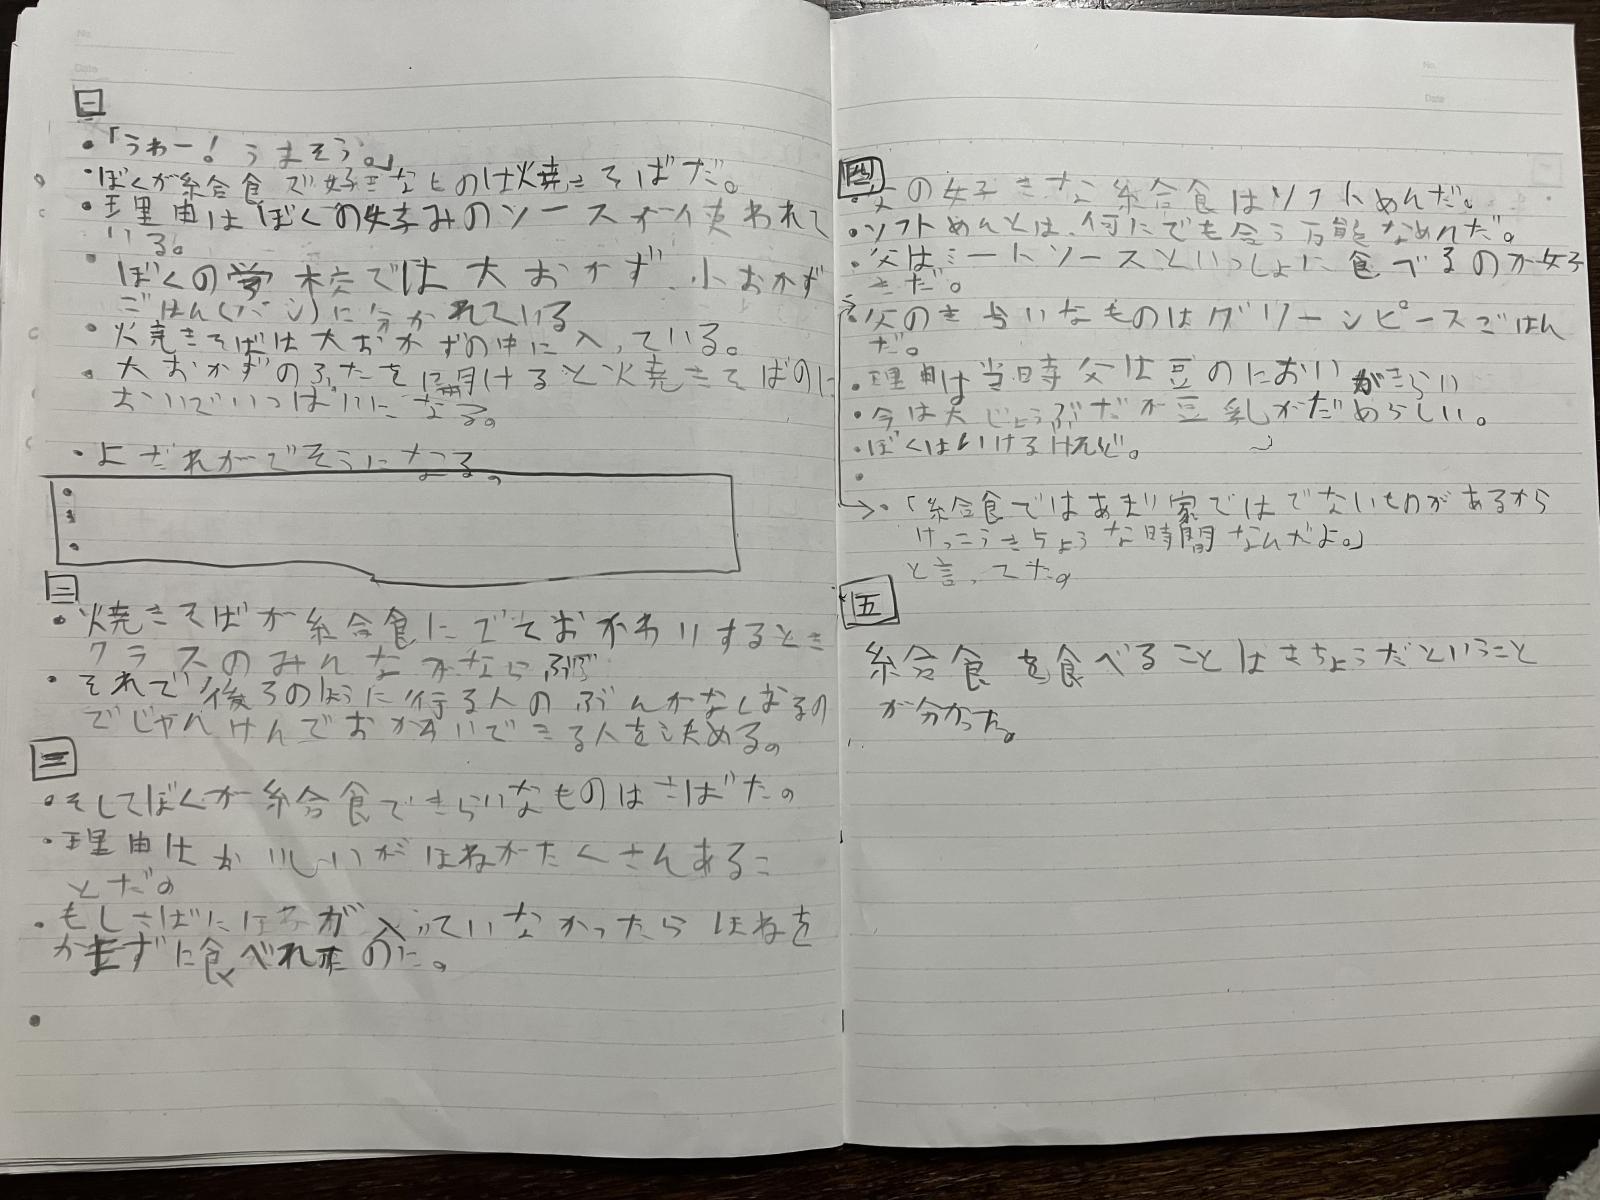 No.
Date
一
・「うわー！うまそう。」
・ぼくが給食で好きなものは焼きそばだ。
・理由はぼくの好みのソースが使われて
いる。
・ぼくの学校では大おかず、小おかず
ごはん(パン)に分かれている
・焼きそばは大おかずの中に入っている。
・大おかずのふたを開けると焼きそばのに
おいでいっぱいになる。
・よだれがでそうになる。
二
・焼きそばが給食にでておかわりするとき
クラスのみんながならぶ
・それで後ろのように行る人のぶんがなくなるの
でじゃんけんでおかわりできる人を決める。
三
・そしてぼくが給食できらいなものはさばだ。
・理由はおいしいがほねがたくさんあるこ
とだ。
・もしさばにほねが入っていなかったらほねを
かまずに食べれたのに。
No.
Date
四
・父の好きな給食はソフトめんだ。
・ソフトめんとは、何にでも合う万能なめんだ。
・父はミートソースといっしょに食べるのが好
きだ。
・父のきらいなものはグリーンピースごはん
だ。
・理由は当時父は豆のにおいがきらい
・今は大じょうぶだが豆乳がだめらしい。
・ぼくはいけるけれど。
・「給食ではあまり家ではでないものがあるから
けっこうきちょうな時間なんだよ。」
と言ってた。
五
給食を食べることはきちょうだということ
が分かった。